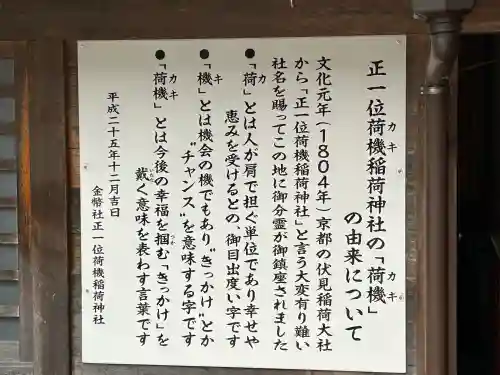 正一位荷機稲荷神社の「荷機」
カキ
カキ
の由来について
文化元年(1804年)京都の伏見稲荷大社
から「正一位荷機稲荷神社」と言う大変有り難い
社名を賜ってこの地に御分霊が御鎮座されました
●「荷」とは人が肩で担ぐ単位であり幸せや
カ
恵みを受けるとの 御目出度い字です
●「機」とは機会の機でもあり"きっかけ"とか
キ
"チャンス"を意味する字です
●「荷機」とは今後の幸福を掴む「きっかけ」を
カキ
つか
戴く意味を表わす言葉です
いただ
平成二十五年十二月吉日
金幣社正一位荷機稲荷神社